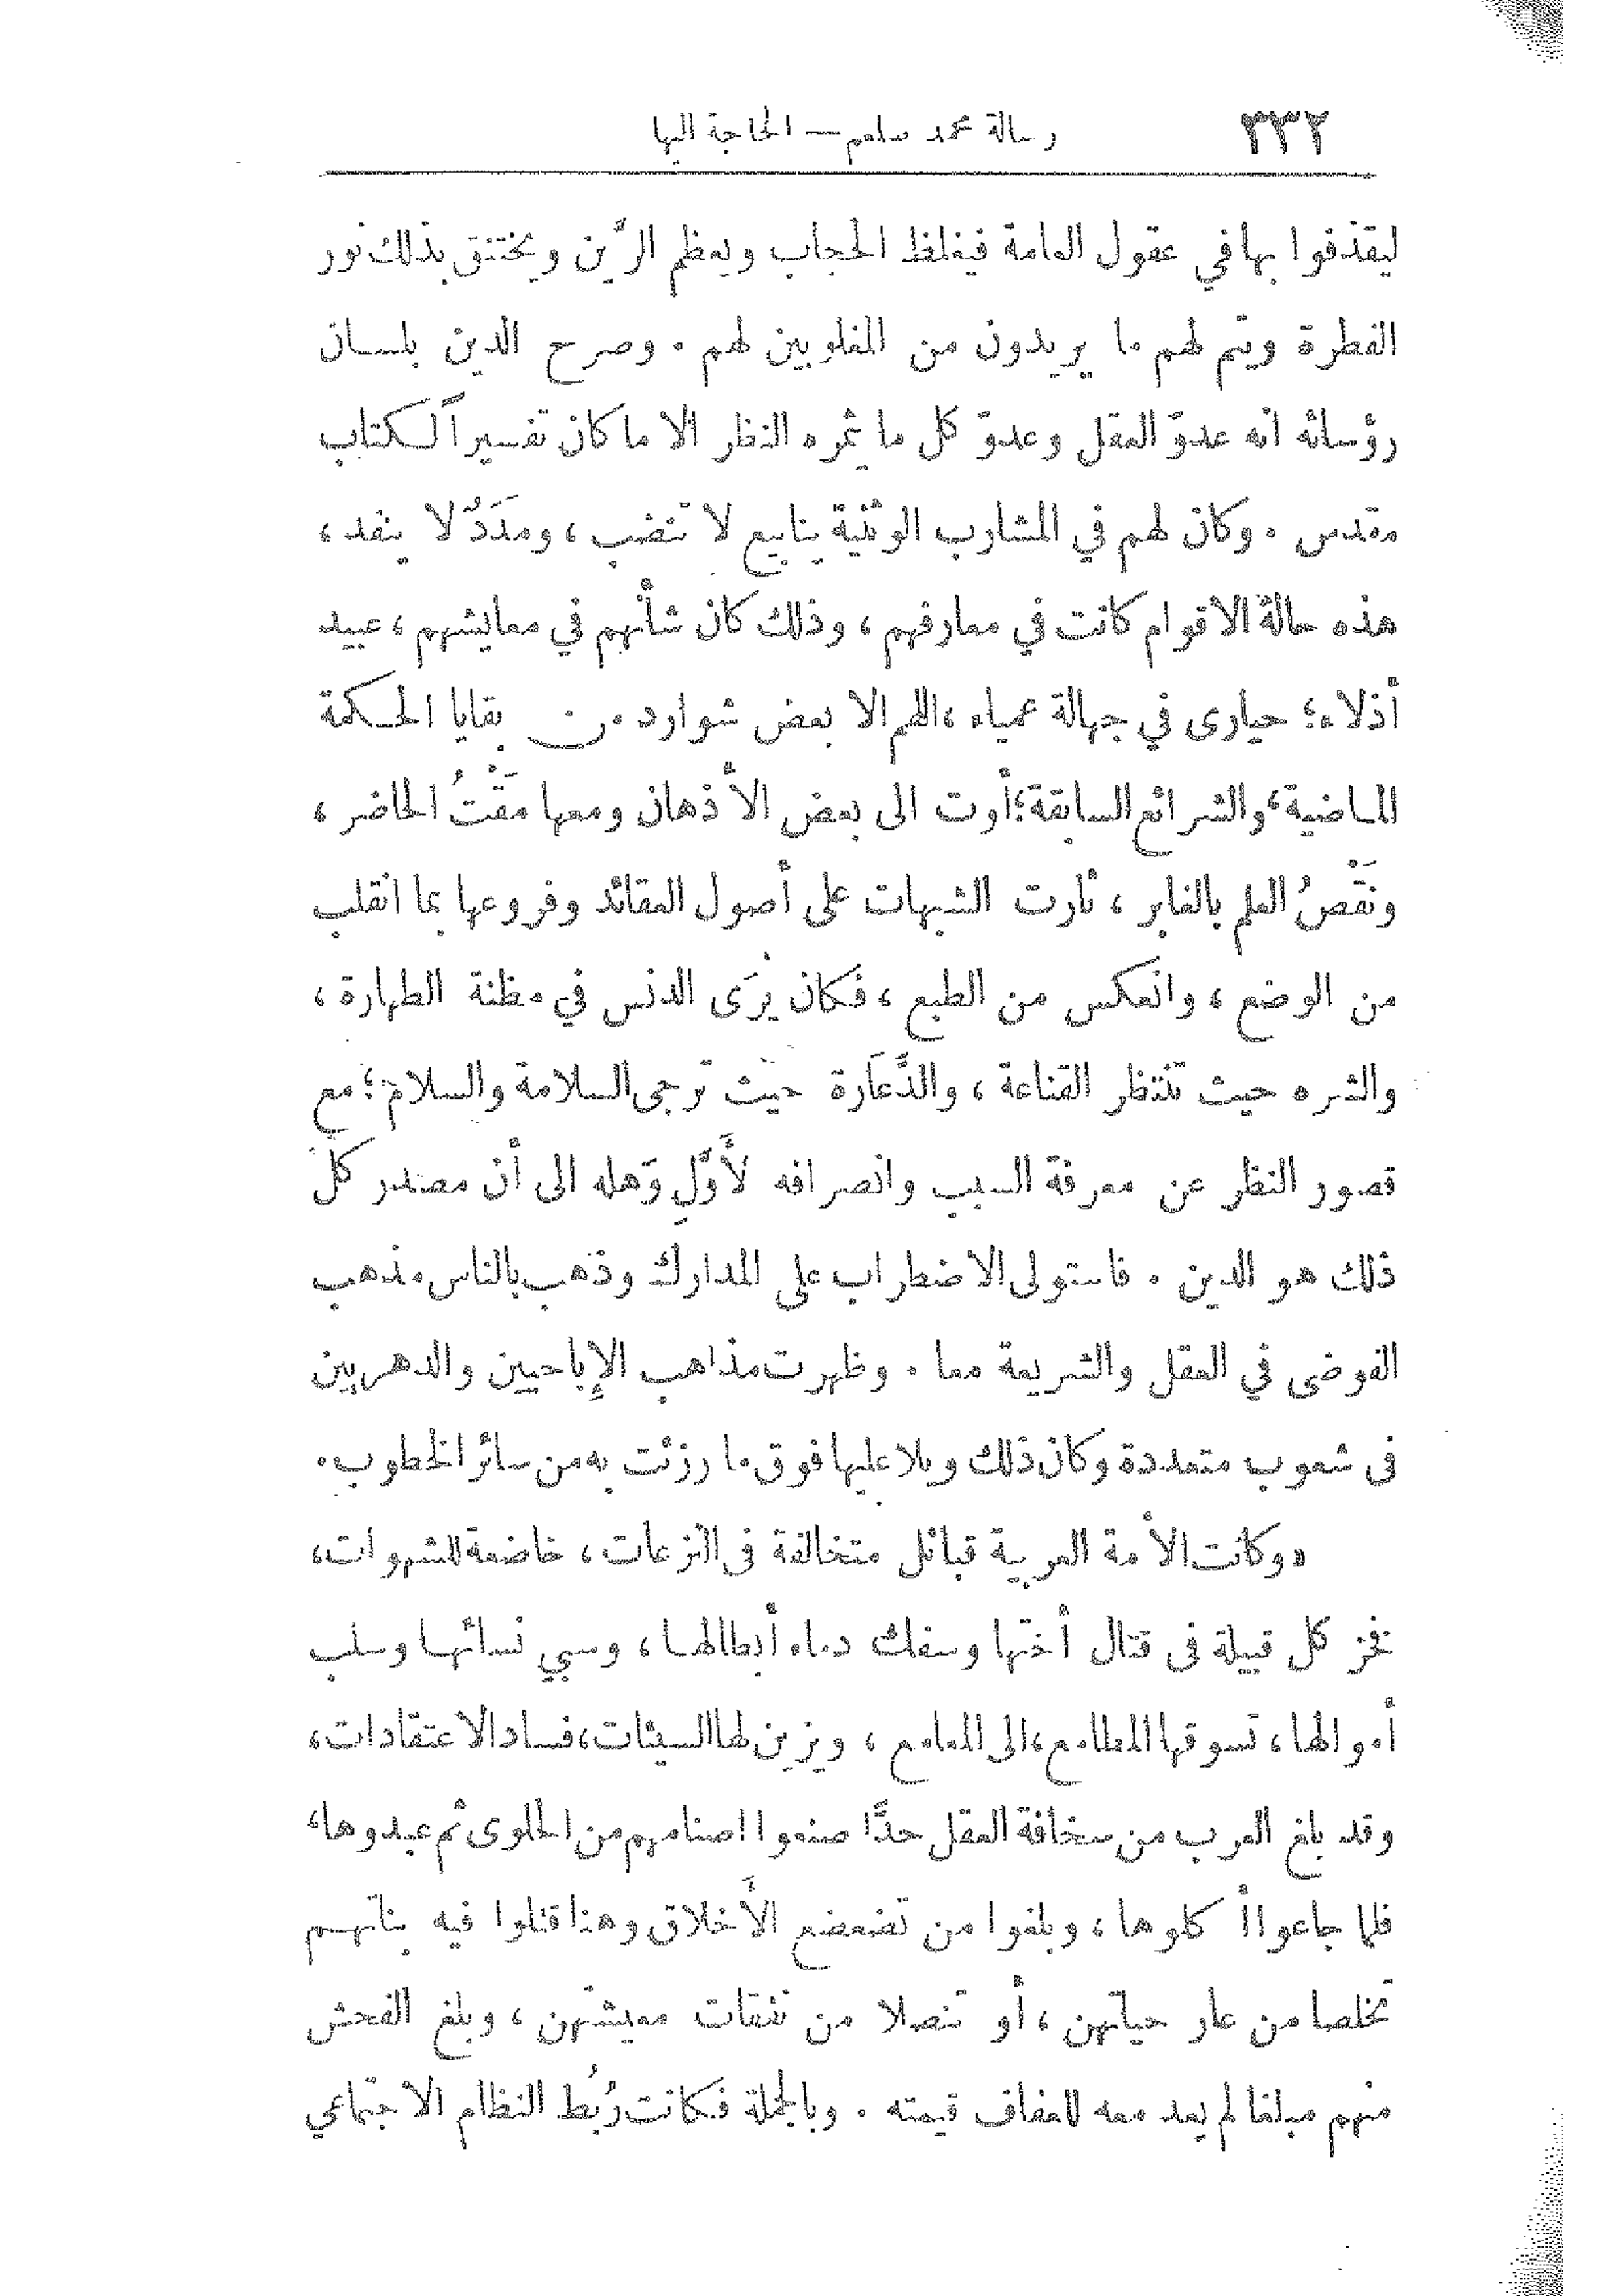 ٣٣٢ رسالة محمد صلعم — الحاجة اليها
ليقذفوا بها في عقول العامة فيغلظ الحجاب ويعظم الرَّين ويختنق بذلك نور
الفطرة ويتم لهم ما يريدون من المغلوبين لهم . وصرح الدين بلسان
رؤسائه انه عدوّ العقل وعدوّ كل ما يثمره النظر الا ما كان تفسيراً لكتاب
مقدس . وكان لهم في المشارب الوثنية ينابيع لا تنضب ، ومَدَدٌ لا ينفد ،
هذه حالةُ الاقوام كانت في معارفهم ، وذلك كان شأنهم في معايشهم ، عبيد
أذلاء؛ حيارى في جهالة عمياء ، اللهم الا بعض شوارد من بقايا الحكمة
الماضية ، والشرائع السابقة؛ أوت الى بعض الأذهان ومعها مَقْتُ الحاضر ،
ونَقْصُ العلم بالغابر ، ثارت الشبهات على أصول العقائد وفروعها بما انقلب
من الوضع ، وانعكس من الطبع ، فكان يُرَى الدنس في مظنة الطهارة ،
والشره حيث تنتظر القناعة ، والدَّعَارة حيث ترجى السلامة والسلام؛ مع
قصور النظر عن معرفة السبب وانصرافه لأَوَّلِ وَهله الى أن مصدر كل
ذلك هو الدين . فاستولى الاضطراب على المدارك وذهب بالناس مذهب
الفوضى في العقل والشريعة معا . وظهرت مذاهب الإباحيين والدهريين
فى شعوب متعددة وكان ذلك ويلا عليها فوق ما رزئت به من سائر الخطوب .
«وكانت الأمة العربية قبائل متخالفة فى النزعات ، خاضعة للشهوات ،
فخر كل قبيلة فى قتال أختها وسفك دماء أبطالها ، وسبي نسائها وسلب
أموالها ، تسوقها المطامع ، الى المعامع ، ويزين لها السيئات ، فساد الاعتقادات ،
وقد بلغ العرب من سخافة العقل حدًّا صنعوا اصنامهم من الحلوى ثم عبدوها ،
فلما جاعوا أكلوها ، وبلغوا من تضعضع الأَخلاق وهنا قتلوا فيه بناتهم
تخلصا من عار حياتهن ، أو تنصلا من نفقات معيشتهن ، وبلغ الفحش
منهم مبلغا لم يعد معه للعفاف قيمته . وبالجملة فكانت رُبُط النظام الاجتماعي